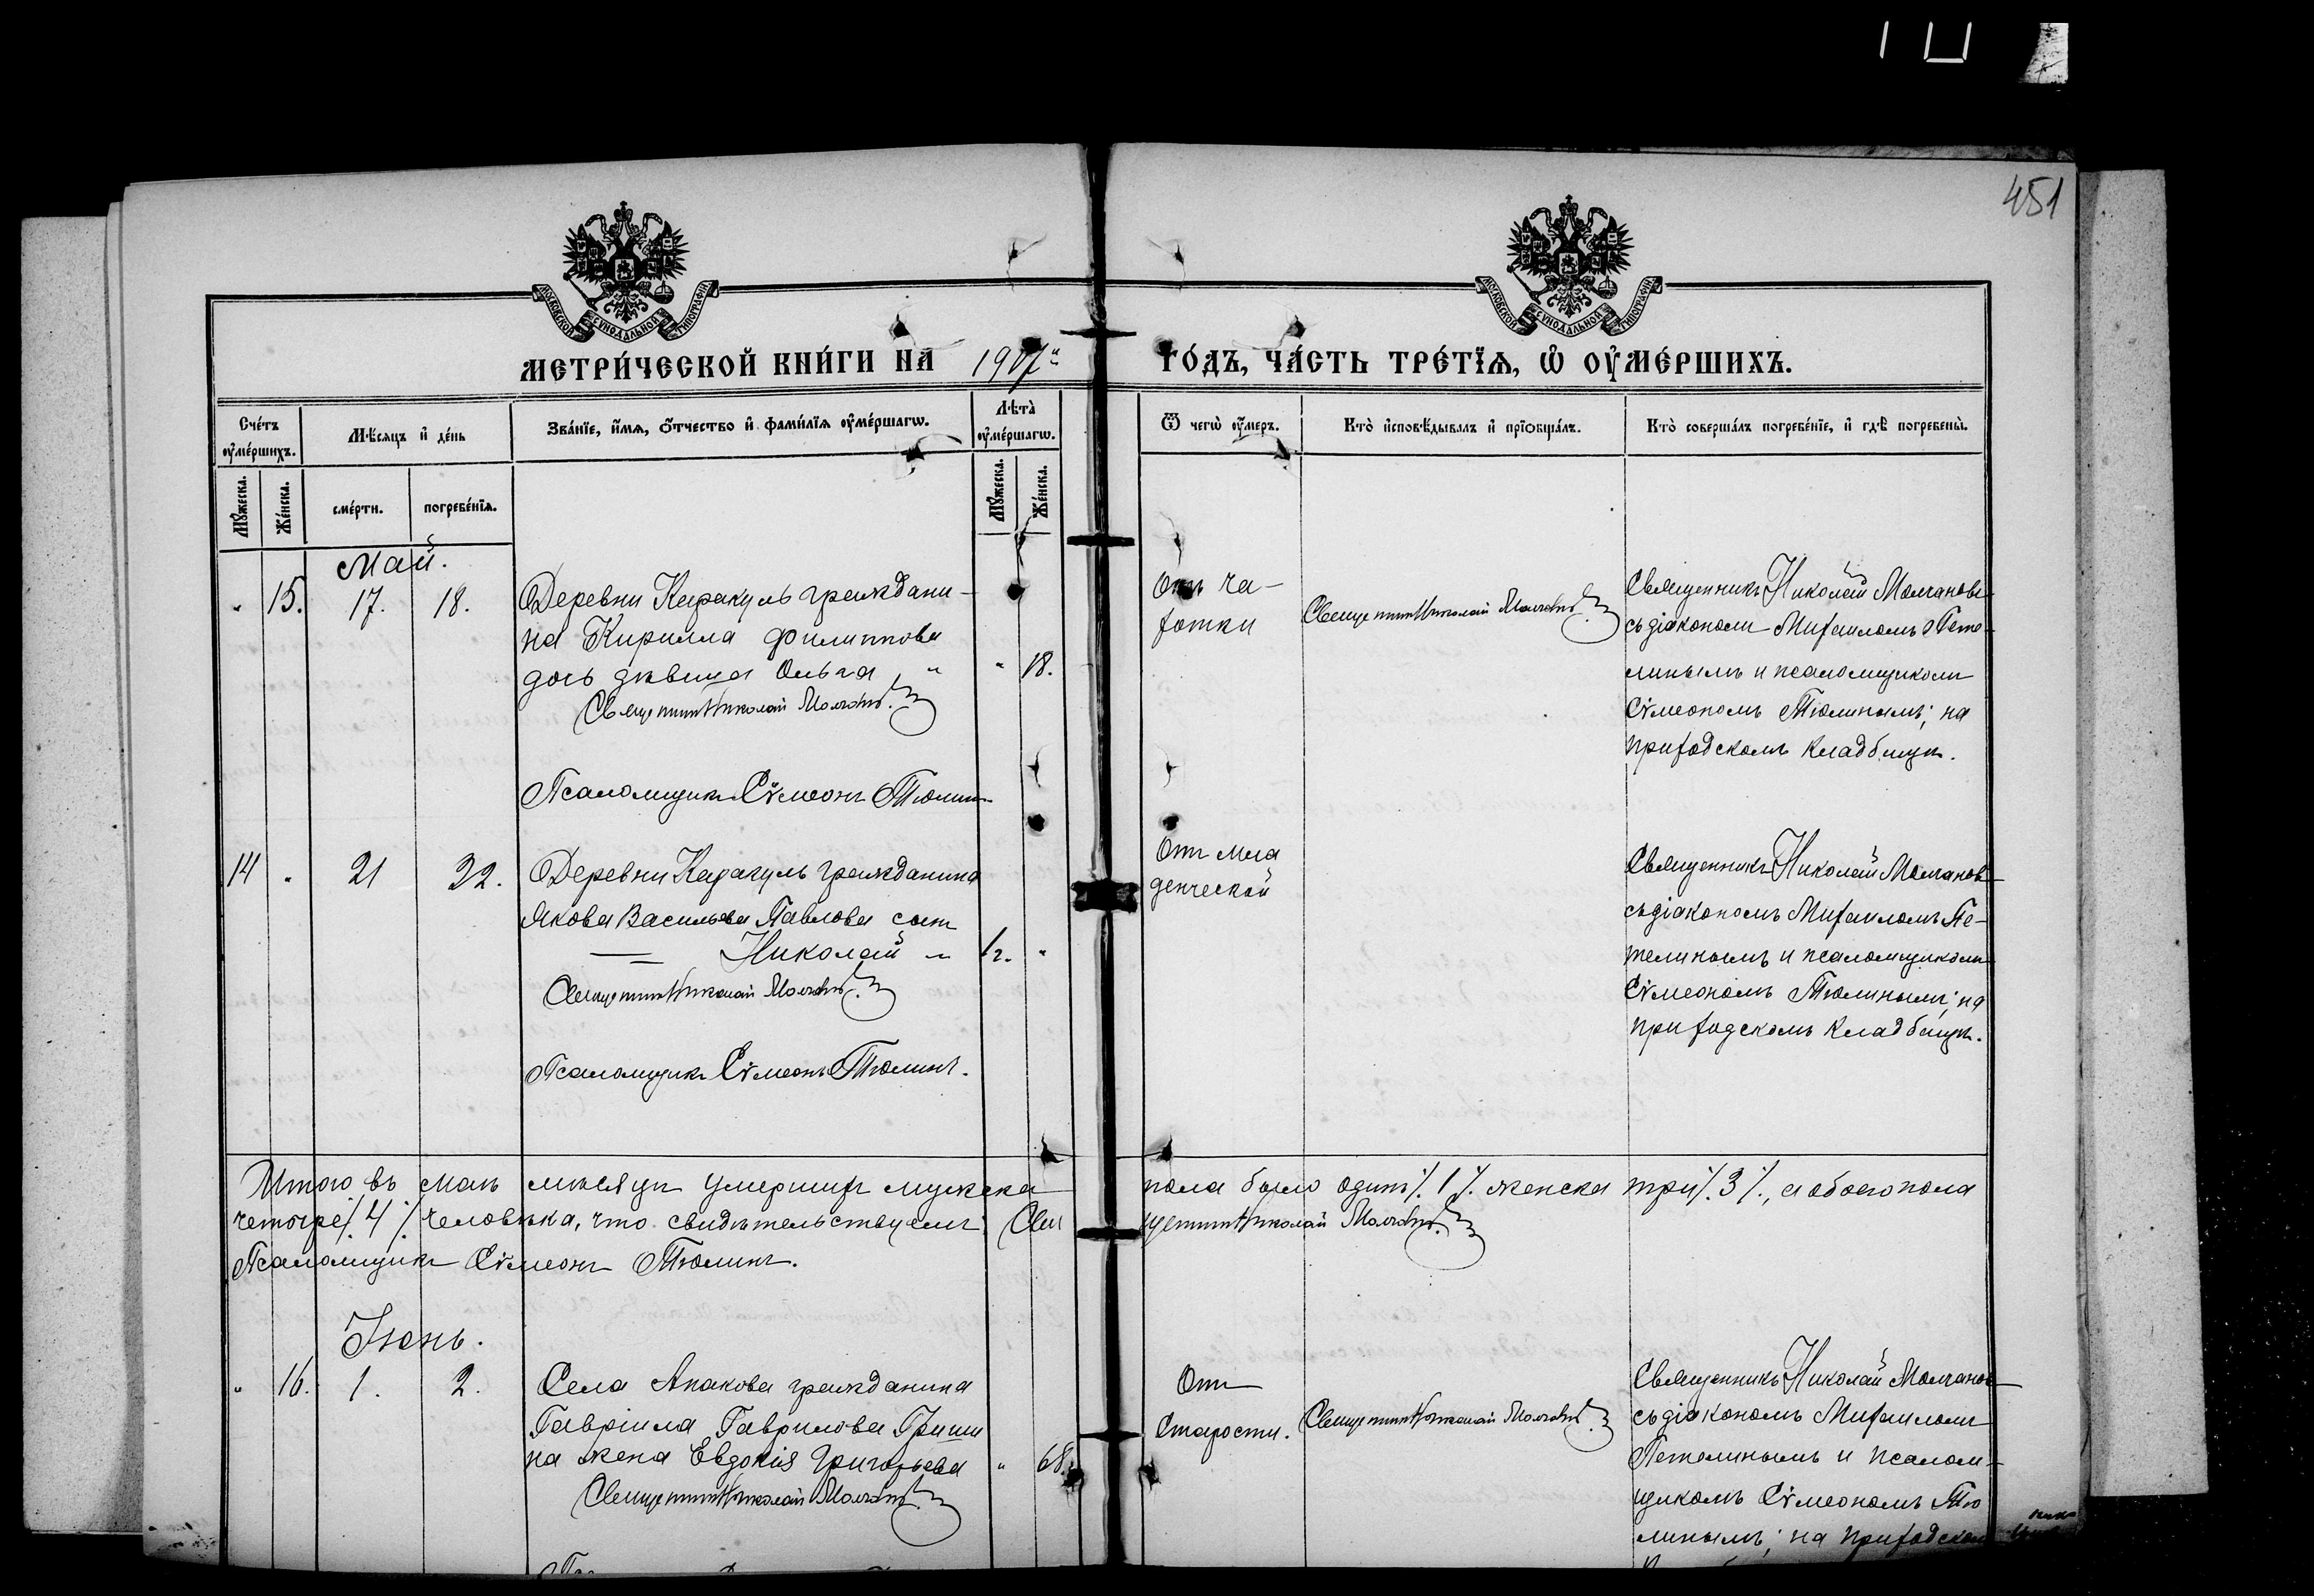 451
МОСКОВСКОЙ СѴНОДАЛЬНОЙ ТИПОГРАФІИ
МОСКОВСКОЙ СѴНОДАЛЬНОЙ ТИПОГРАФІИ
МЕТРИ́ЧЕСКОЙ КНИ́ГИ НА 1907 ГО́ДЪ, ЧА́СТЬ ТРЕ́ТЇѦ, Ѡ҆ ОУ҆МЕ́РШИХЪ.
Сче́тъ оу҆ме́ршихъ.
Мѣ́сяцъ и҆ де́нь
Зва́нїе, и҆́мѧ, ѻ҆́тчество и҆ фами́лїѧ оу҆ме́ршагѡ.
Лѣта̀ оу҆ме́ршагѡ.
Ѿ чегѡ̀ оу҆́меръ.
Кто̀ и҆сповѣ́дывалъ и҆ прїѡбща́лъ.
Кто̀ соверша́лъ погребе́нїе, и҆ гдѣ̀ погребены̀.
Мꙋ́жеска.
Же́нска.
сме́рти.
погребе́нїѧ.
Мꙋ́жеска.
Же́нска.
Май.
" 15. 17. 18.
Деревни Каракуль граждани-
на Кирилла Филиппова
дочь девица Ольга " " 18.
Священник Николай Молчановъ
Псаломщикъ Сѵмеонъ Тюлинъ
Отъ ча-
хотки
Священник Николай Молчановъ
Священникъ Николай Молчановъ
съ діакономъ Михаиломъ Пете-
линымъ и псаломщикомъ
Сѵмеономъ Тюлинымъ; на
приходскомъ кладбищѣ.
14 " 21 22.
Деревни Каракуль гражданина
Якова Васильева Павлова сынъ
Николай " "
Священник Николай Молчановъ
Псаломщикъ Сѵмеонъ Тюлинъ.
Отъ мла
денческой
Священникъ Николай Молчановъ
съ діакономъ Михаиломъ Пе-
телинымъ и псаломщикомъ
Сѵмеономъ Тюлинымъ; на
приходскомъ кладбищѣ.
Итого въ маѣ мѣсяцѣ умершихъ мужска пола было одинъ /.1/. женска три /.3/., а обоего пола
четыре /.4/. человѣка, что свидѣтельствуемъ: Священник Николай Молчановъ
Псаломщикъ Сѵмеонъ Тюлинъ.
Іюнь.
" 16. 1. 2.
Села Апакова гражданина
Гавріила Гаврилова Гриши
на жена Евдокія Григорьева " 68.
Священник Николай Молчановъ
Отъ
старости.
Священник Николай Молчановъ
Священникъ Николай Молчановъ
съ діакономъ Михаиломъ
Петелинымъ и псалом-
щикомъ Сѵмеономъ Тю
линымъ; на приходском